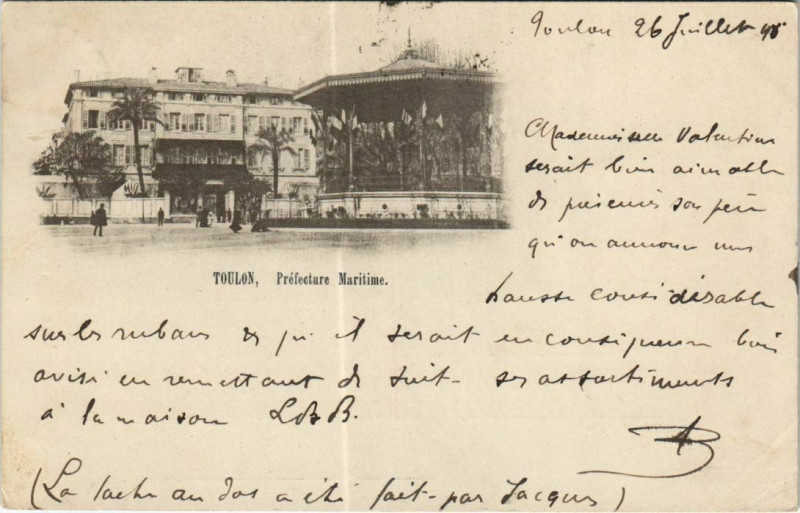 Toulon 26 Juillet 98
Mademoiselle Valentine
serait bien aimable
de prévenir son père
qu'on annonce une
TOULON, Préfecture Maritime.
hausse considérable
sur les rubans & qu'il serait en conséquence bien
avisé en remettant de suite ses assortiments
à la maison L. & B.
(La tache au dos a été faite par Jacques)